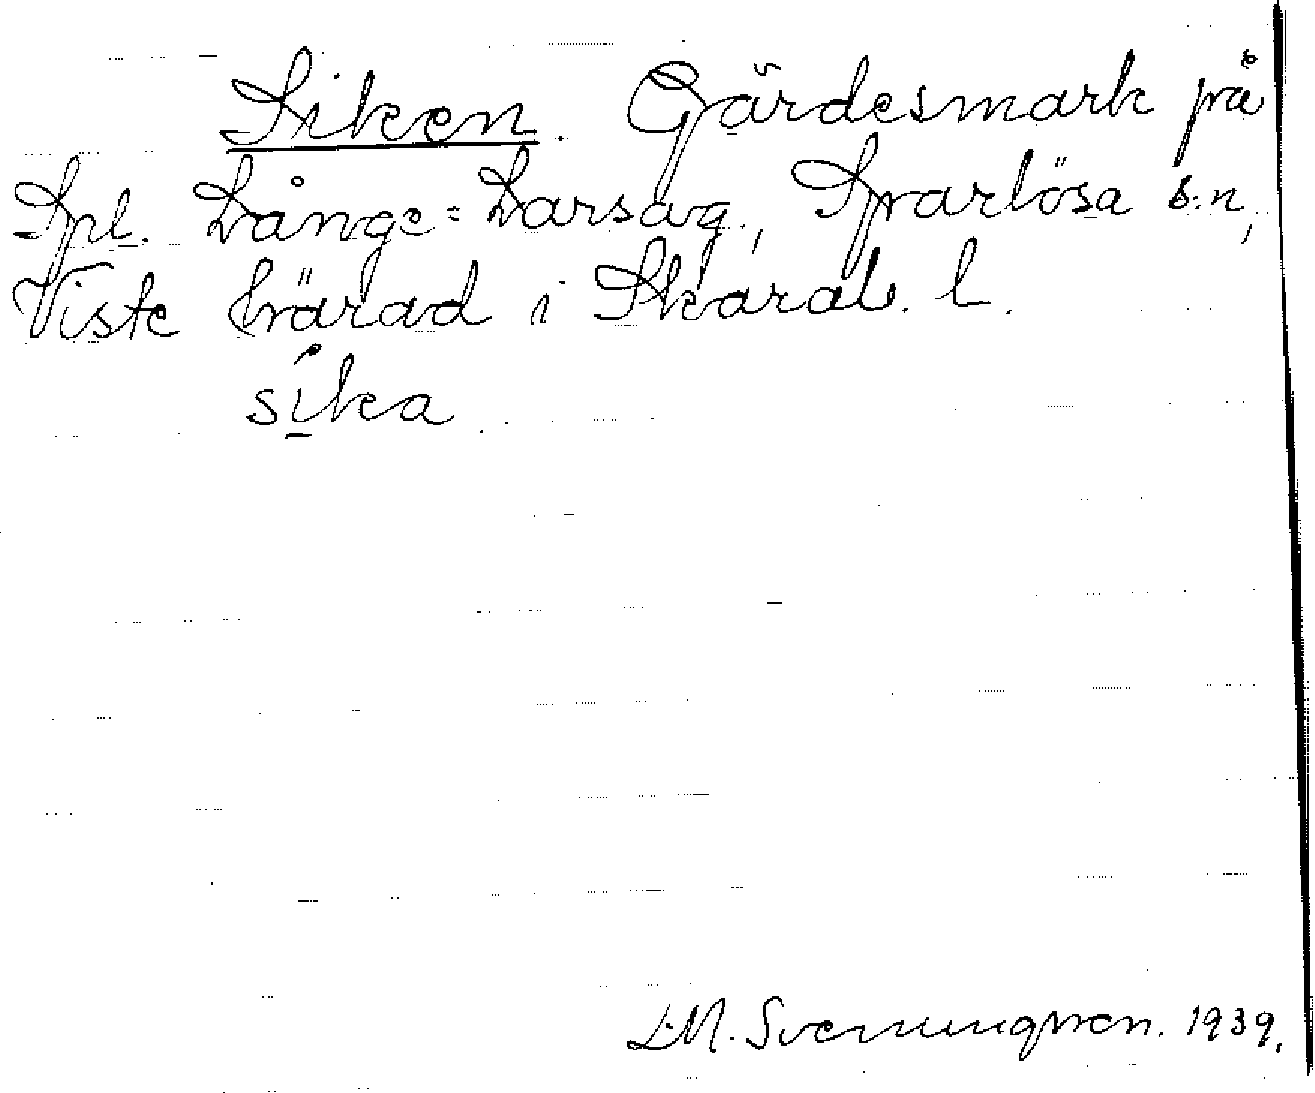 Siken. Gärdesmark på
Spl. Långe=Larsag., Sparlösa s:n,
Viste härad i Skarab. l.
sika
L.M. Svenungsson. 1939.